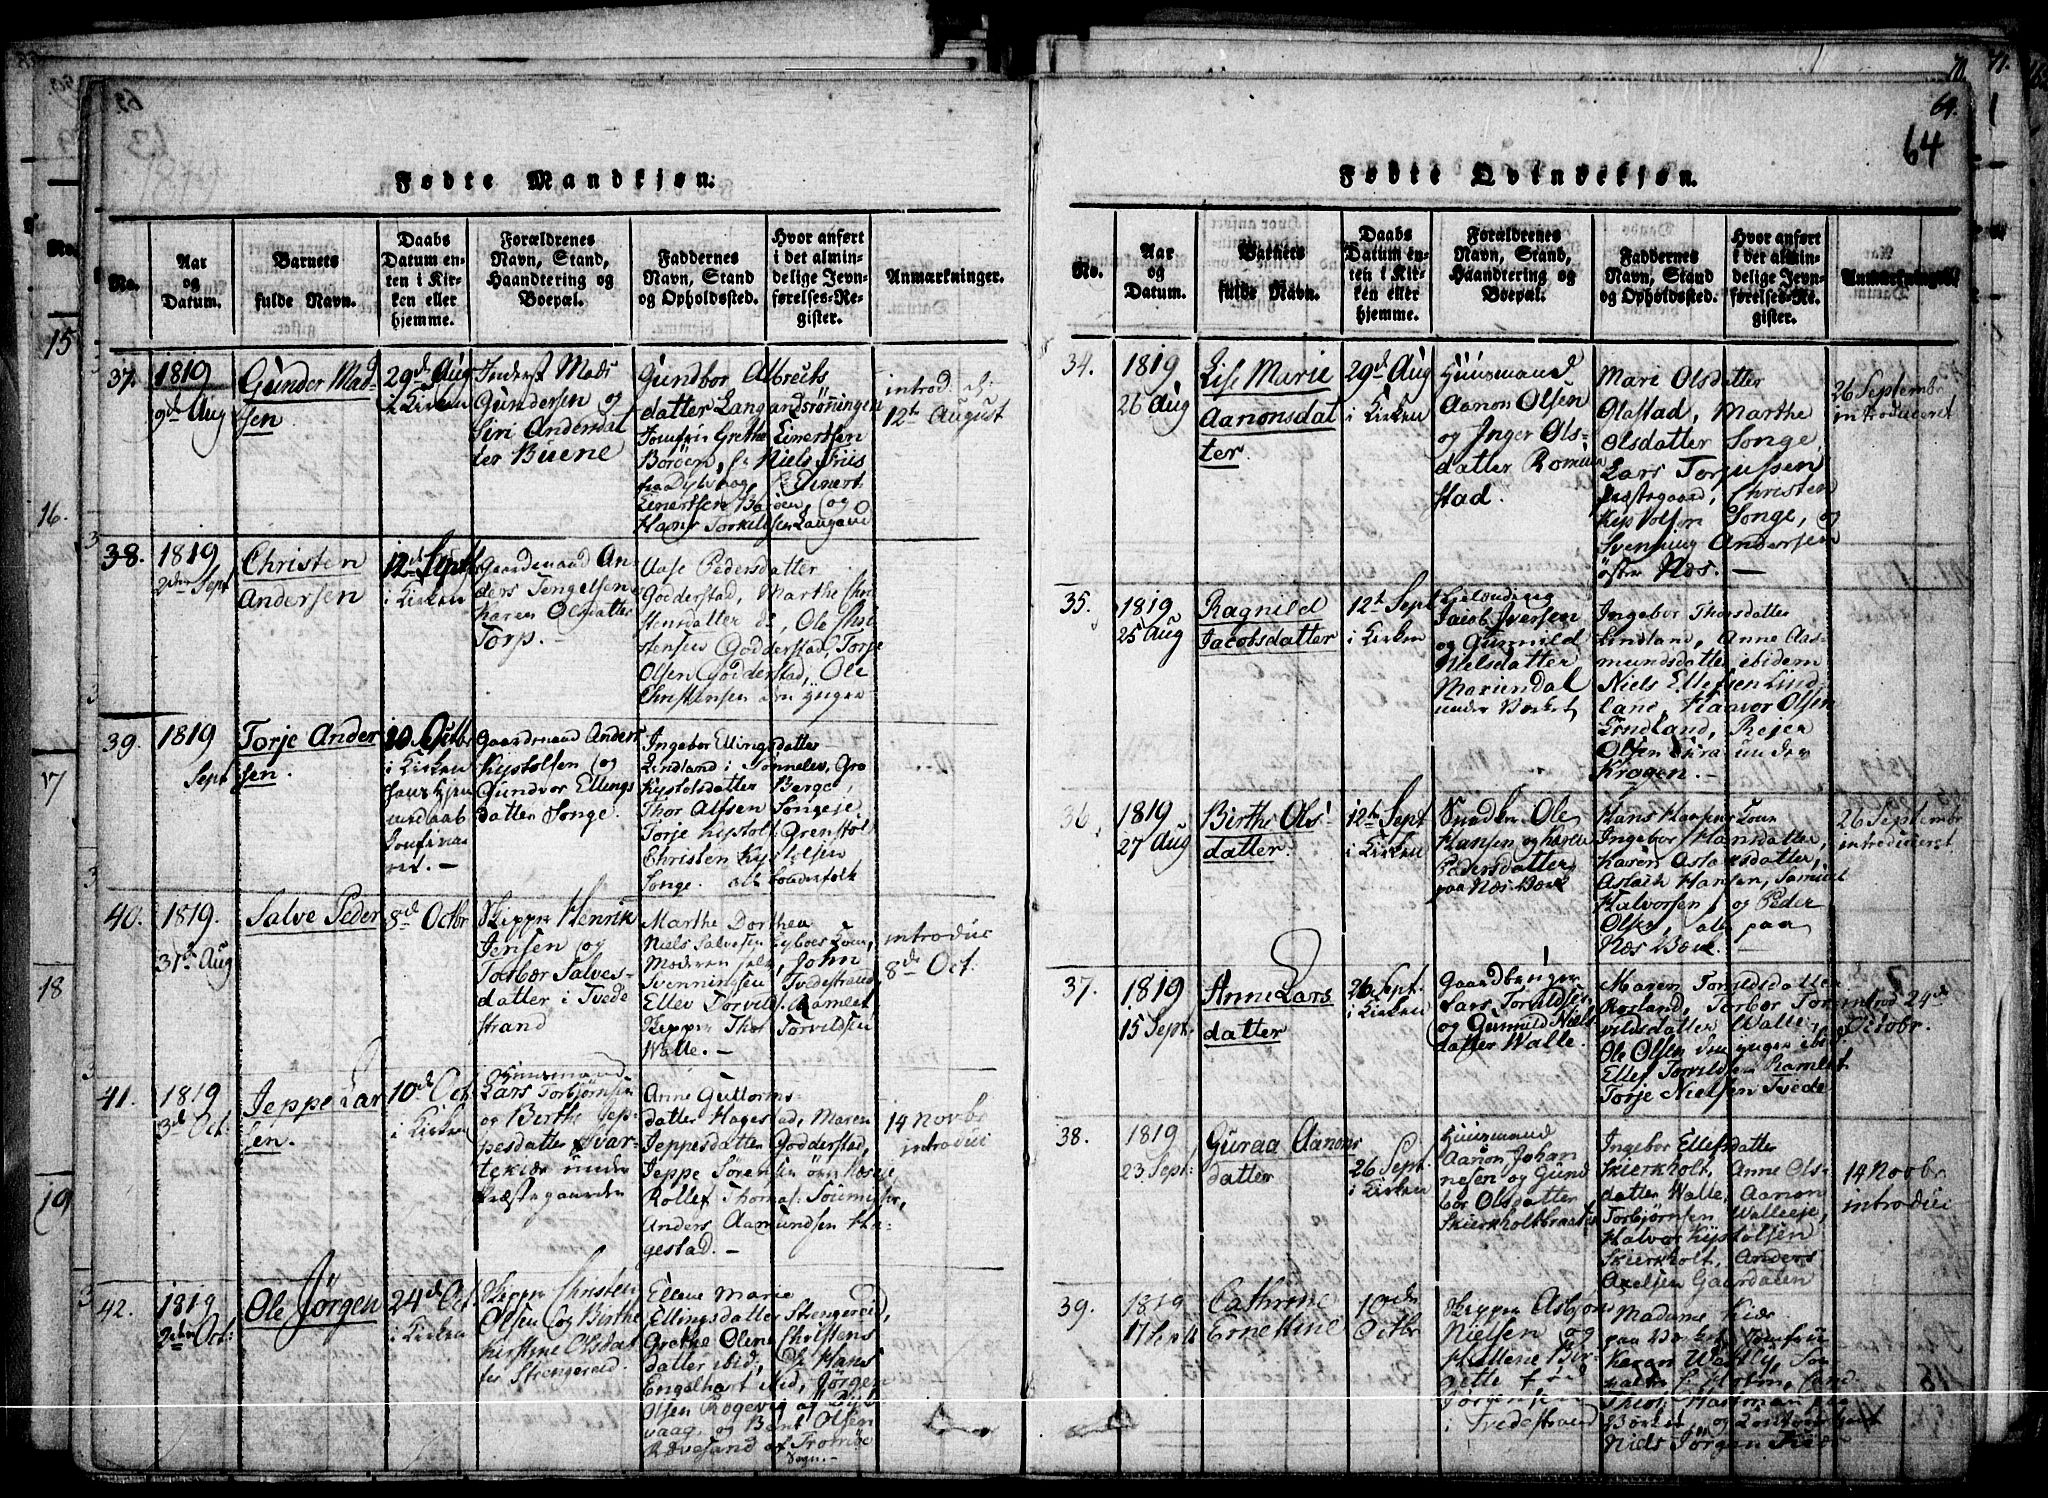 64.
64
Fødte Mandkjøn.
No.
Aar og Datum.
Barnets fulde Navn.
Daabs Datum enten i Kirken eller hjemme.
Forældrenes Navn, Stand, Haandtering og Boepæl.
Faddernes Navn, Stand og Opholdssted.
Hvor anført i det almindelige Jevnførelses-Register.
Anmærkninger.
37.
1819
9d Aug
Gunder Mad-
sen
29d Aug
i Kirken
Inderst Mads
Gundersen og
Siri Andersdat
ter Buene
Gundbor Albrects
datter Langandsrönningen
Jomfru Grethe Einertsen
Boröen, Niels Friis
fra Dybvaag, Einert
Einertsen Boröen, og
Hans Torkildsen Langand
introd.
12te August
38.
1819
2den Sept
Christen
Andersen
12d Sept
i Kirken
Gaardmand An-
ders Tengelsen
Karen Olsdatter
Torp. -
Aase Pedersdatter
Godderstad, Marthe Chri
stensdatter do, Ole Chri
stensen Godderstad, Torje
Olsen Godderstad, Ole
Christensen den yngre
39.
1819
Sept
Torje Ander
sen.
10 Octbr
i Kirken
hjem
medaab
Confirme
ret. -
Gaardmand Anders
Kystolsen og
Gundvor Ellings
datter Songe.
Ingebor Ellingsdatter
Lindland i Sønneløv, Gro
Kystolsdatter Berge,
Thor Alfsen Songeje
Torje Kystols. Grenstöl
Christen Kystolsen
Songe. alle bonderfolk
40.
1819.
31te Aug
Salve Peder
8d Octbr
Skipper Henrik
Jensen og
Torbor Salves-
datter i Tvede
strand
Marthe Dorthea
Niels Salvesen Nyboes Kone,
Moderen selv, John
Svenningsen Tvedestrand,
Ellev Torvilds. Ramlet
Skipper Thor Torvildsen
Walle. -
introduc
8de Oct.
41.
1819
3d Oct.
Jeppe Lar
sen.
10d Oct.
i Kirken
Huusmand
Lars Torbjörnsen
og Berthe Jep-
pesdatter Svar-
tekiær under
Præstegaarden
Anne Guttorms-
datter Hagestad, Maren
Jeppesdatter Godderstad,
Jeppe Sörensen
Rollef Thomas.
Anders Aamundsen Ha-
gestad. -
14 Novbr
introduc
42.
1819
2den Oct:
Ole Jörgen
24d Oct.
i Kirken
Skipper Christen
Olsen og Birthe
Kirstine Olsdat
ter Strengereid.
Ellene Marie
Ellingsdatter Strengereid,
Grethe Olene Christens
datter ibid, Hans
Engelhart Ned, Jörgen
Olsen Rogevig af Dyb
vaag, og Bent Olsen
Revesand af Tromöe
Sogn. -
Fødte Qvindekjøn.
No.
Aar og Datum.
Barnets fulde Navn.
Daabs Datum enten i Kirken eller hjemme.
Forældrenes Navn, Stand, Haandtering og Boepæl.
Faddernes Navn, Stand og Opholdssted.
Hvor anført i det almindelige Jevnførelses-Re. gister.
Anmærkninger.
34.
1819
26 Aug
Lise Marie
Aanonsdat
ter.
29d Aug
i Kirken
Huusmand
Aanon Olsen
og Inger Ols-
datter Romun
stad.
Mari Olsdatter
Olastad, Marthe
Olsdatter Songe,
Lars Torjussen
Præstegaard, Christen
Kystolsen Songe, og
Svenning Andersen
östre Næs. -
26 Septembr
introduceret
35.
1819
25 Aug
Ragnild
Jacobsdatter
12te Sept
i Kirken
Jacob Iversen
og Gunnild
Nielsdatter
Mariendal
under Borket
Ingebor Thorsdatter
Lindland, Anne Aas-
mundsdatter ibidem
Niels Ellefsen Lind
land, Haavor Olsen
Lindland, Rejer
Olsen under
Kragen. -
36.
1819
27 Aug
Birthe Ols
datter.
12te Sept
i Kirken
Ole
Hansen og Karen
Pedersdatter
paa Næs Værk
Hans Kone
Ingebor Hansdatter,
Karen Aslaksdatter,
Aslach Hansen, Samuel
Halvorsen, og Peder
Olsen, alle paa
Næs Værk. -
26 Septembr
introduceret
37.
1819
15 Sept.
Anne Lars
datter
26 Sept.
i Kirken
Gaardbruger
Lars Torvildsen
og Gunnild Niels
datter Walle.
Maren Torvildsdatter
Rorland, Torbor Tor-
vildsdatter Walle,
Ole Olsen den yngre ibid.
Ellef Torvildsen Ramlet
Torje Nielsen Tvede
introd 24d
Octobr.
38.
1819
23 Sept.
Guraa Aanons
datter
26 Sept.
i Kirken
Huusmand
Aanon Johan
nesen og Gund
bor Olsdatter
Skierkholtbraaten
Ingebor Ellefsdatter
Skierkholt, Anne Ols-
datter Walle, Aanon
Torbjörnsen Walleeje,
Halvor Kystolsen
Skierkholt, Anders
Axelsen Gaardalen
14 Novbr
introduc
39.
1819
17 Sept
Cathrine
Ernestine
10de
Octbr
Skipper Asbjörn
Nielsen og
Hellene Bir-
gette föd
Jörgensen
i Tvedestrand
Madame Kiær
paa Borket, Jomfru
Karen Westly,
Holm, Cand
Theol. Hartman paa
Borket, og
Niels Jörgen Kiær